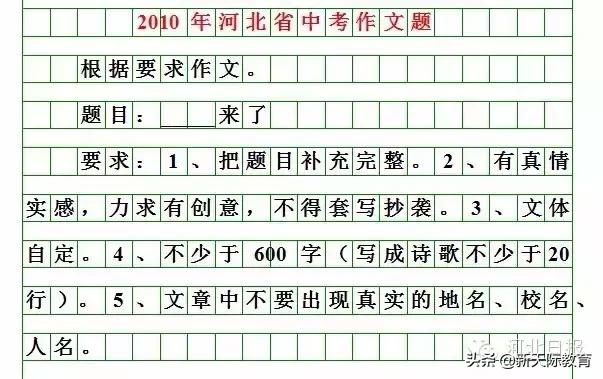 2010年河北省中考作文题
根据要求作文。
题目：_____来了
要求：1、把题目补充完整。2、有真情
实感，力求有创意，不得套写抄袭。3、文体
自定。4、不少于600字（写成诗歌不少于20
行）。5、文章中不要出现真实的地名、校名、
人名。
河北日报
头条@新天际教育